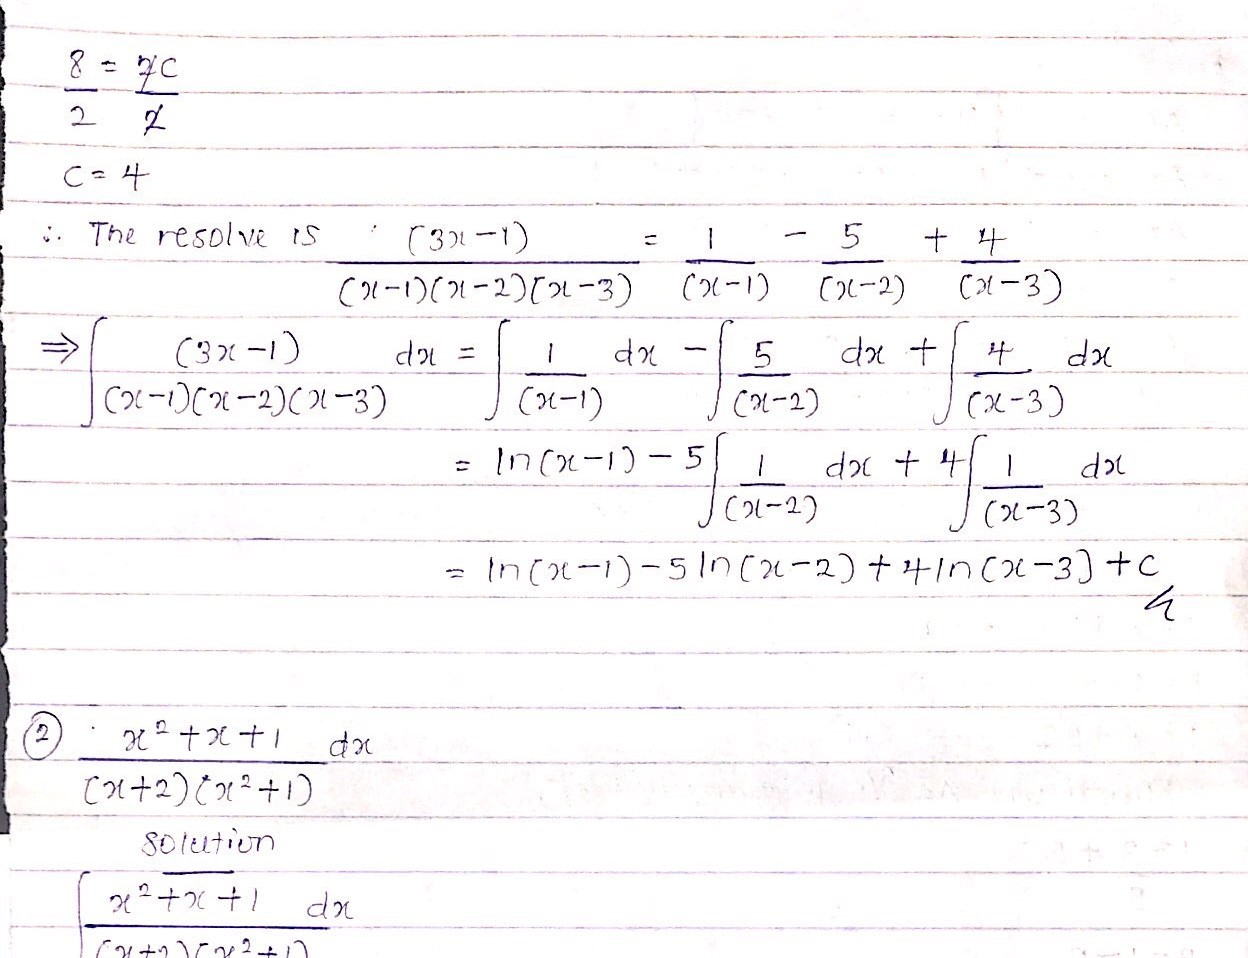 8/2 = 2c/2
c = 4
∴ The resolve is (3x-1)/((x-1)(x-2)(x-3)) = 1/(x-1) - 5/(x-2) + 4/(x-3)
⇒ ∫ (3x-1)/((x-1)(x-2)(x-3)) dx = ∫ 1/(x-1) dx - ∫ 5/(x-2) dx + ∫ 4/(x-3) dx
= ln(x-1) - 5∫ 1/(x-2) dx + 4∫ 1/(x-3) dx
= ln(x-1) - 5 ln(x-2) + 4 ln(x-3) + c
② (x² + x + 1)/((x+2)(x²+1)) dx
solution
∫ (x² + x + 1)/((x+2)(x²+1)) dx